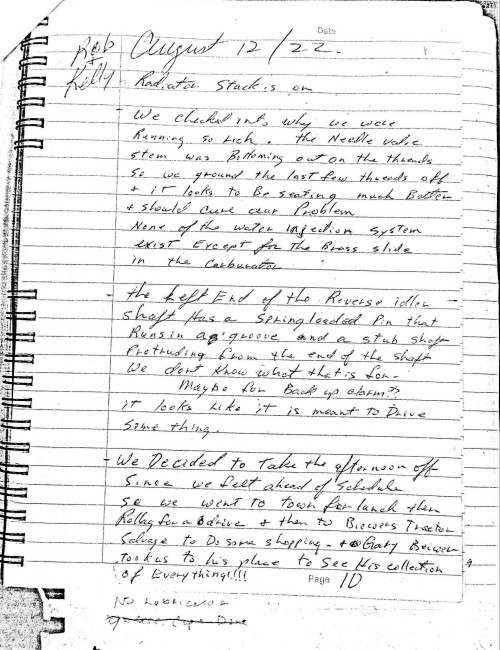 Date
Rob
+
Kelly
August 12/22.
- Radiator Stack is on
- We checked into why we were
Running so rich. the Needle valve
stem was Bottoming out on the threads
so we ground the last few threads off
+ it looks to Be seating much Better
+ should cure our Problem
None of the water injection system
exist Except for the Brass slide
in the Carburator
- the Left End of the Reverse idler
shaft Has a Spring loaded Pin that
Runs in a groove and a stub shaft
Protruding from the end of the shaft
We dont Know what that is for.
Maybe for Back up alarm??
it looks Like it is meant to Drive
Some thing.
- We Decided to Take the afternoon off
Since we felt ahead of Schedule
So we went to town for lunch then
Rollag for a drive + then to Brewers Tractor
Salvage to Do some shopping - + Gary Brewer
took us to his place to See His collection
of Everything!!!!
Page 10
No Lubricator